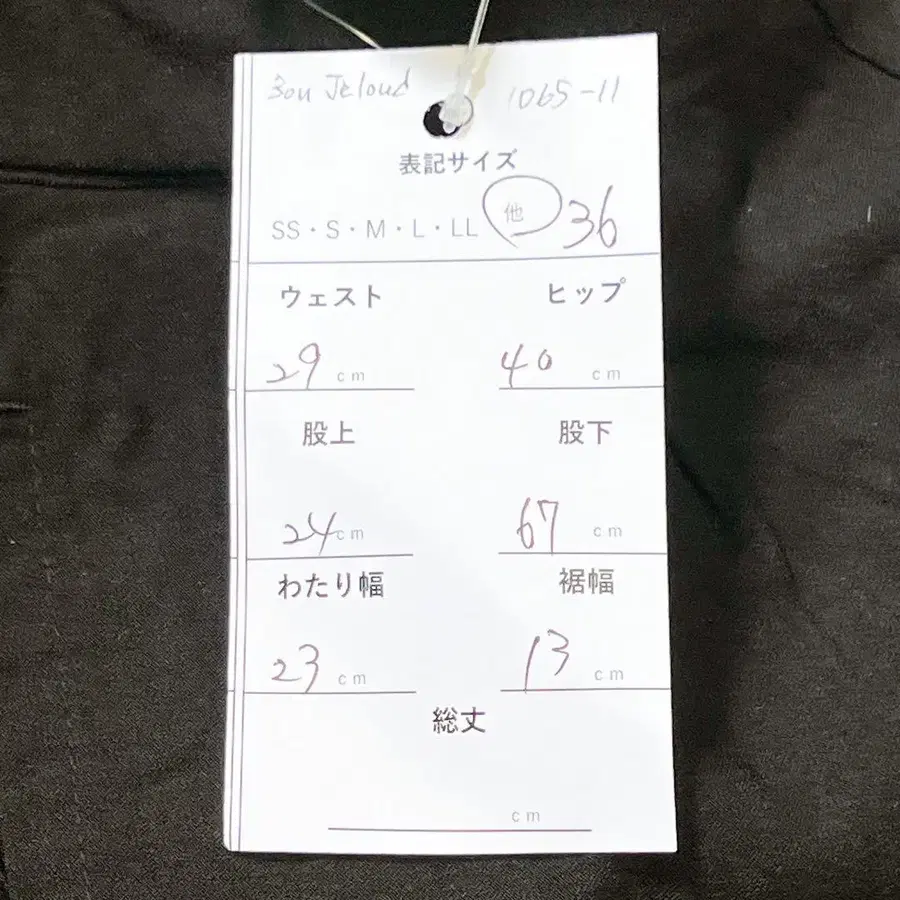 Bon Jeloud 1065-11
表記サイズ
SS・S・M・L・LL 他 36
ウェスト ヒップ
29 cm 40 cm
股上 股下
24 cm 67 cm
わたり幅 裾幅
23 cm 13 cm
総丈
cm